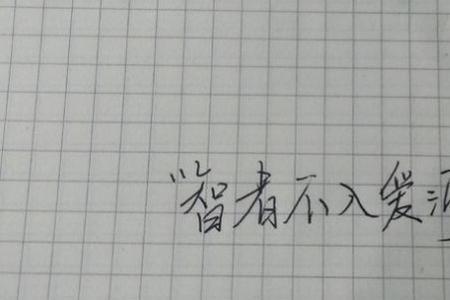 “智者不入爱